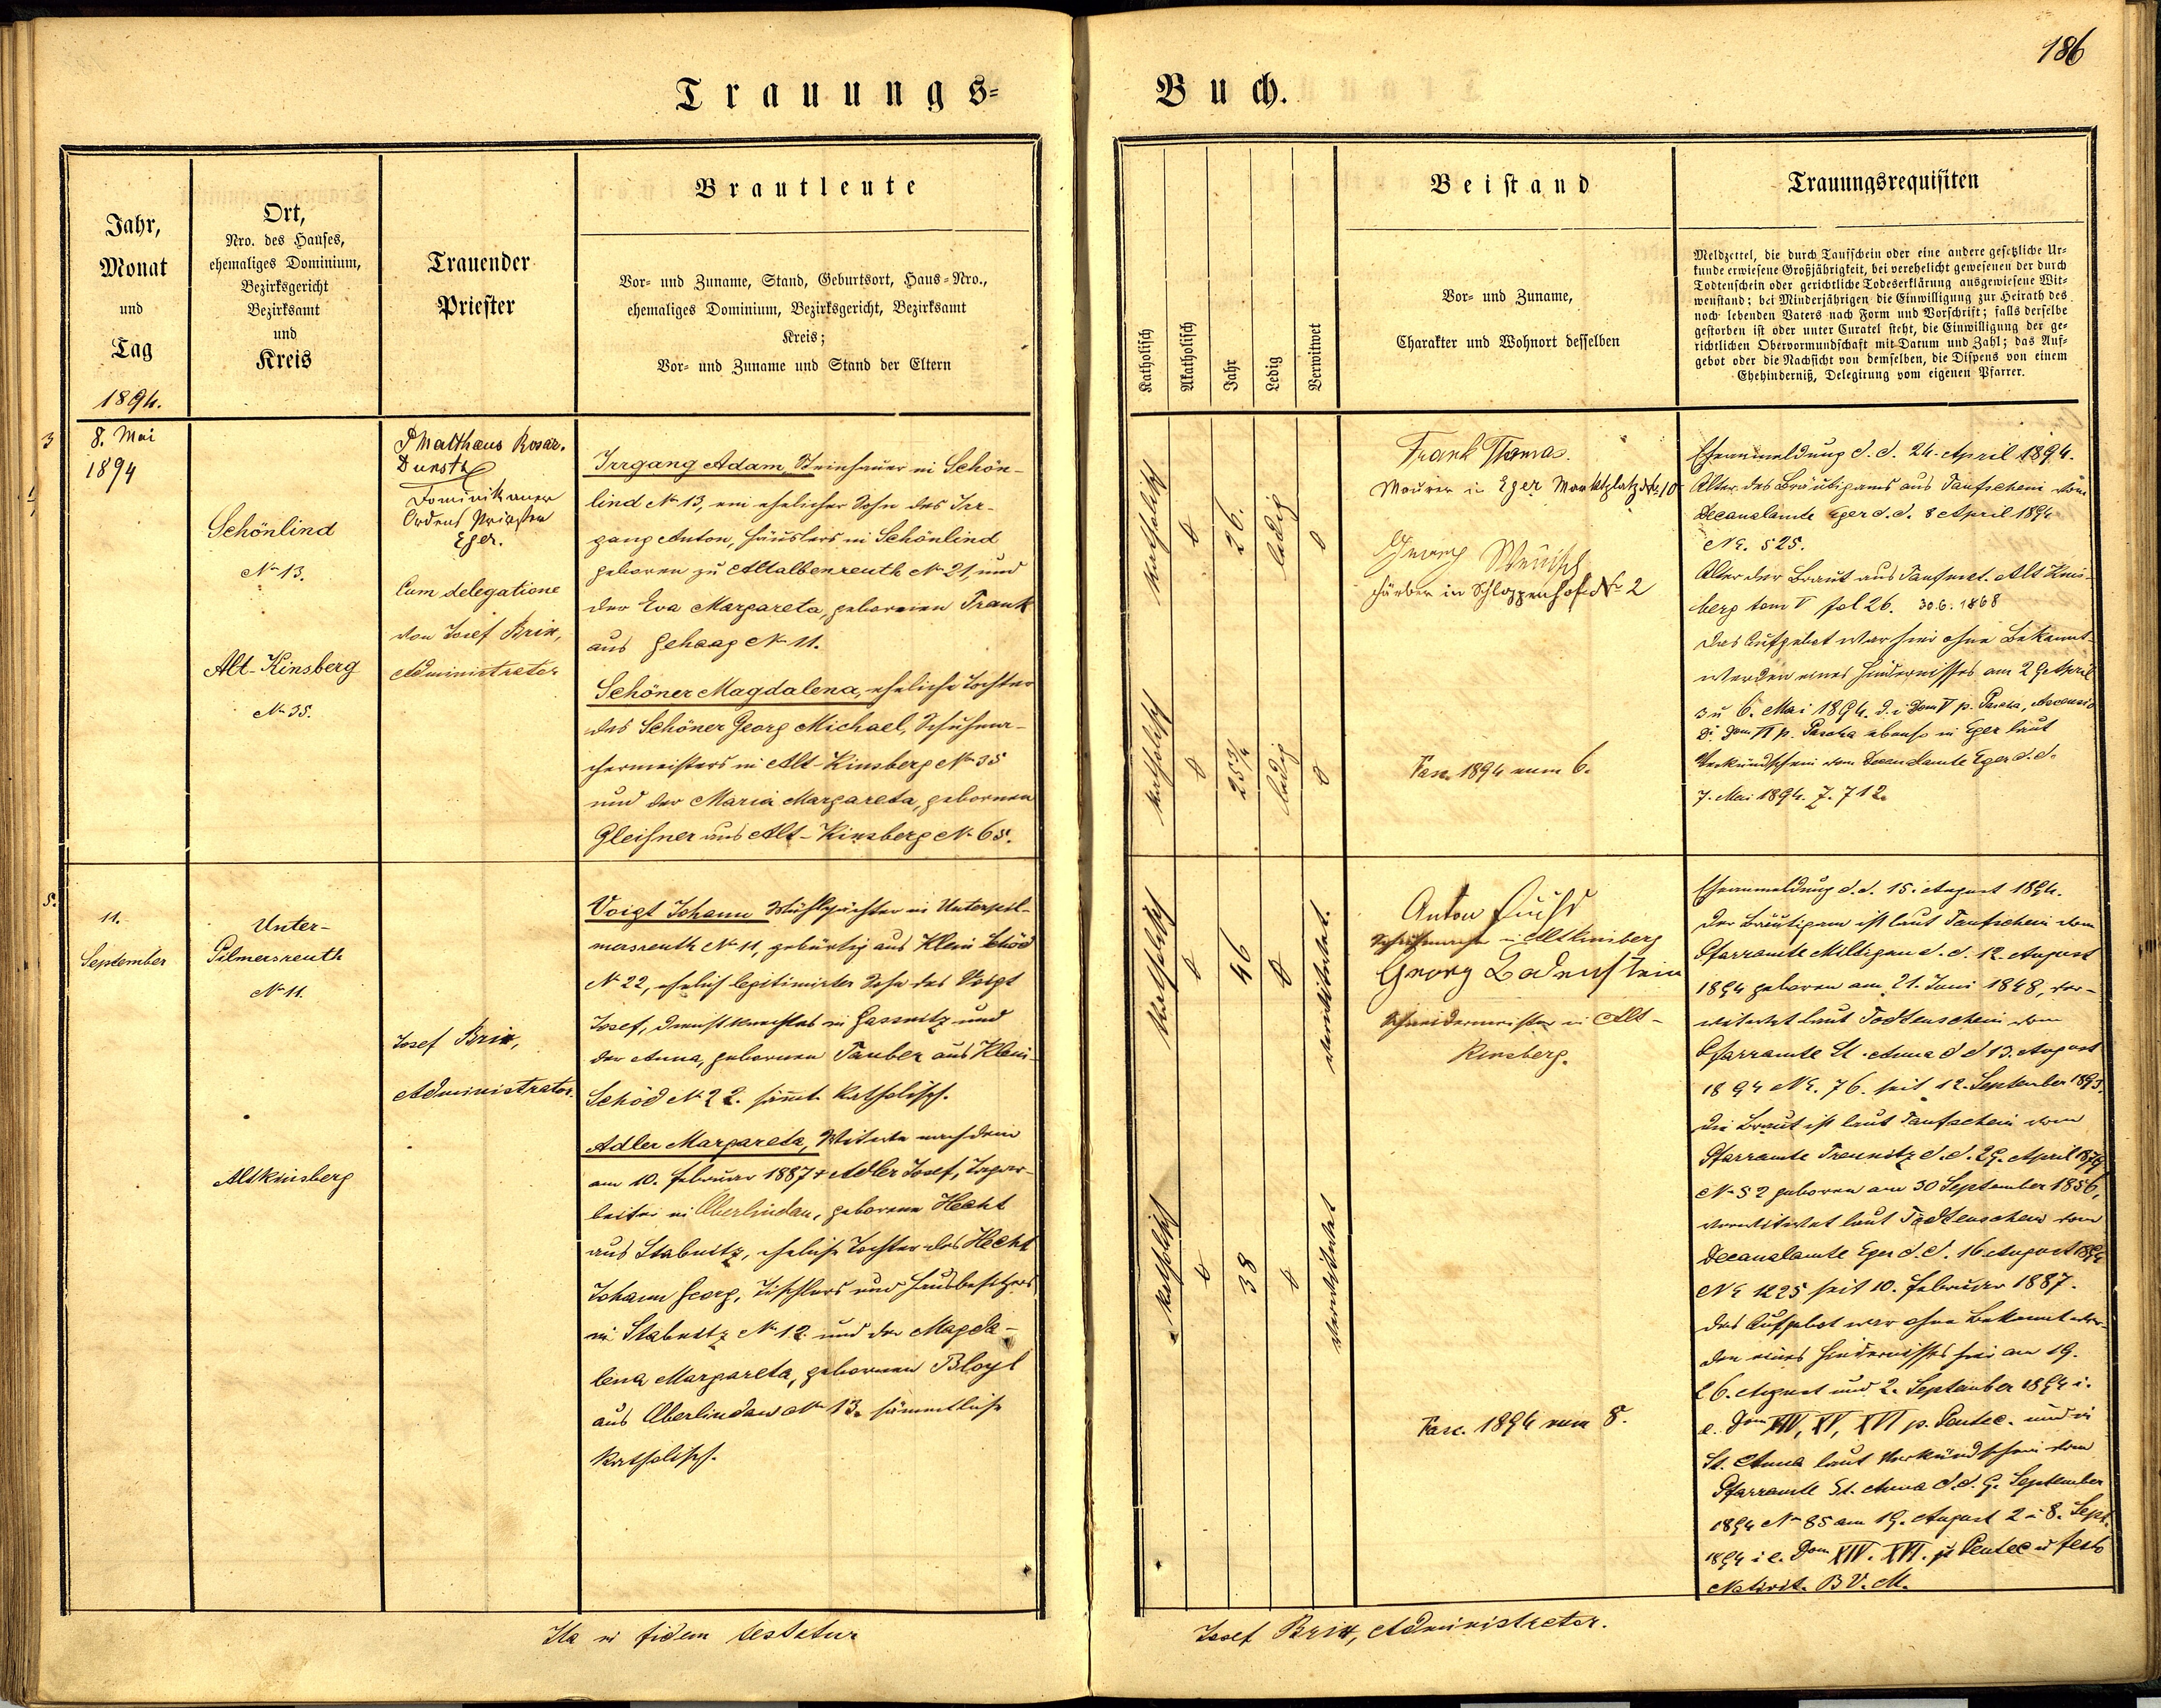 186
Trauungs=
Buch.
Jahr,
Monat
und
Tag
1894.
Ort,
Nro. des Hauses,
ehemaliges Dominium,
Bezirksgericht
Bezirksamt
und
Kreis
Trauender
Priester
Brautleute
Vor- und Zuname, Stand, Geburtsort, Haus-Nro.,
ehemaliges Dominium, Bezirksgericht, Bezirksamt
Kreis;
Vor- und Zuname und Stand der Eltern
Katholisch
Akatholisch
Jahr
Ledig
Verwitwet
Beistand
Vor- und Zuname,
Charakter und Wohnort desselben
Trauungsrequisiten
Meldzettel, die durch Taufschein oder eine andere gesetzliche Ur-
kunde erwiesene Großjährigkeit, bei verehelicht gewesenen der durch
Todtenschein oder gerichtliche Todeserklärung ausgewiesene Wit-
wenstand; bei Minderjährigen die Einwilligung zur Heirath des
noch lebenden Vaters nach Form und Vorschrift; falls derselbe
gestorben ist oder unter Curatel steht, die Einwilligung der ge-
richtlichen Obervormundschaft mit Datum und Zahl; das Auf-
gebot oder die Nachsicht von demselben, die Dispens von einem
Ehehinderniß, Delegirung vom eigenen Pfarrer.
3
8. Mai
1894
Schönlind
No 13.
Alt-Kinsberg
No 35.
P Matthaus Rosar.
Dunst
Dominikaner
Ordens Priester
Eger.
Cum delegatione
von Josef Brix,
Administrator
Irrgang Adam, Steinhauer in Schön-
lind No 13, ein ehelicher Sohn des Irr-
gang Anton, Häuslers in Schönlind
geboren zu Altalbenreuth No 21, und
der Eva Margareta, geborenen Frank
aus Gehaag No 11.
Schöner Magdalena, eheliche Tochter
des Schöner Georg Michael, Schuhma-
chermeisters in Alt-Kinsberg No 35
und der Maria Margareta, gebornen
Gleißner aus Alt-Kinsberg No 65.
katholisch
0
26.
ledig
0
katholisch
0
25 3/4
ledig
0
Frank Thomas.
Maurer in Eger Marktplatz No 10
Georg Wenisch
Färber in Schloppenhof No 2
Fasc. 1894 num 6.
Eheanmeldung d. d. 24. April 1894.
Alter des Bräutigams aus Taufschein vom
Decanalamte Eger d. d. 8 April 1894
NE. 525.
Alter der Braut aus Taufmat. Alt Kins-
berg tom V fol 26. 30.6.1868
Das Aufgebot war hier ohne Bekannt-
werden eines Hindernisses am 29 April
3 u 6. Mai 1894. d. i Dom V p. Pascha, Ascensio
Di Dom VI p. Pascha ebenso in Eger laut
Verkündschein vom Decanalamte Eger d. d.
7. Mai 1894. Z. 712.
5.
11.
September
Unter-
Pilmersreuth
No 11.
Altkinsberg
Josef Brix,
Administrator.
Voigt Johann Mühlpächter in Unterpil-
mersreuth No 11, gebürtig aus Klein Schöd
No 22, ehelich legitimirter Sohn des Voigt
Josef, Dienstknechtes in Gassnitz und
der Anna, gebornen Tauber aus Klein-
Schöd No 22. sämt. katholisch.
Adler Margareta, Witwe nach dem
am 10. Februar 1887 + Adler Josef, Tagar-
beiter in Oberlindau, geborene Hecht
aus Stabnitz, eheliche Tochter des Hecht
Johann Georg, Tischlers und Hausbesitzers
in Stabnitz No 12. und der Magda-
lena Margareta, gebornen Bloyl
aus Oberlindau No 13. sämmtliche
katholisch.
katholisch
0
46
0
verwitwet.
katholisch
0
38
0
verwitwet
Anton Fuchs
Schuhmacher in Altkinsberg
Georg Badenstein
Schneidermeister in Alt-
Kinsberg.
Fasc. 1894 num 8.
Eheanmeldung d. d. 15. August 1894.
Der Bräutigam ist laut Taufschein vom
Pfarramte Miltigau d. d. 12. August
1894 geboren am 21. Juni 1848, ver-
witwet laut Todtenschein vom
Pfarramte St. Anna d d 13. August
1894 NE. 76. seit 12. September 1893.
Die Braut ist laut Taufschein vom
Pfarramte Treunitz d. d. 29. April 1879
No 52 geboren am 30 September 1856,
verwitwet laut Todtenschein vom
Decanalamte Eger d. d. 16 August 1894
NE 1225 seit 10. Februar 1887.
Das Aufgebot war ohne Bekanntwer-
den eines Hindernisses hier am 19.
26. August und 2. September 1894 i.
e. Dom XIV, XV, XVI p. Pentec. und in
St. Anna laut Verkündschein vom
Pfarramte St. Anna d. d. 9. September
1894 No 85 am 19. August 2 u 8. Sept.
1894 i e. Dom XIV. XVI. p Pentec u festo
Nativit. B V. M.
Ita in fidem testatur
Josef Brix, Administrator.